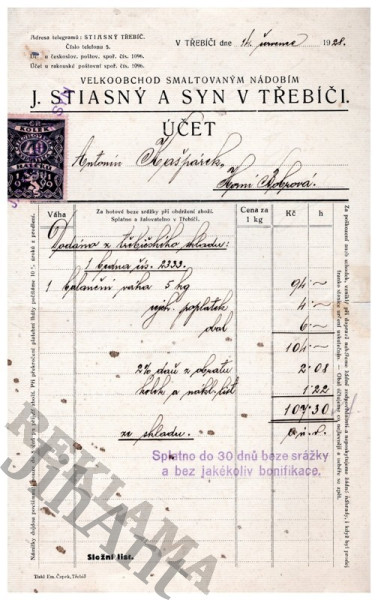 Adresa telegramů: STIASNÝ TŘEBÍČ.
Číslo telefonu 5.
Účet u českoslov. poštov. spoř. čís. 1096.
Účet u rakouské poštovní spoř. čís. 1096.
V TŘEBÍČI dne 14. července 1928.
VELKOOBCHOD SMALTOVANÝM NÁDOBÍM
J. STIASNÝ A SYN V TŘEBÍČI.
ÚČET
KOLEK
40
Antonín Kašpárek,
Horní Bobrová.
Váha
Za hotové beze srážky při obdržení zboží.
Splatno a žalovatelno v Třebíči.
Cena za
1 kg
Kč
h
Dodáno z třebíčského skladu:
1 bedna čís. 2333.
1 balanční váha 5 kg 94 —
poplatek 4 —
obal 6 —
104 —
2% daň z obratu 2 08
kolek a nákl. list 1 22
107 30
ze skladu.
Splatno do 30 dnů beze srážky
a bez jakékoliv bonifikace.
REKLAMA
JinAnt
Složní list.
Tiskl Em. Čapek, Třebíč